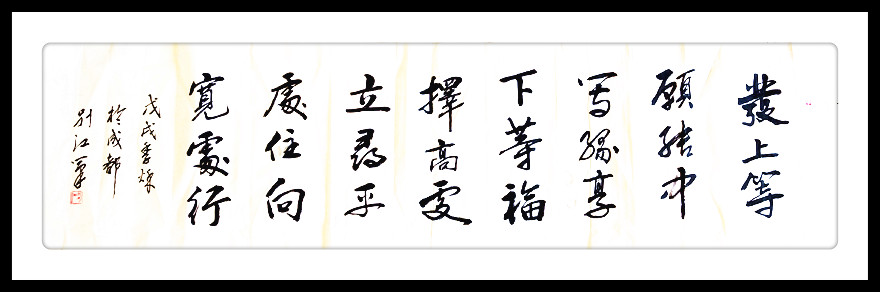 發上等
願結中
等緣享
下等福
擇高處
立尋平
處住向
寬處行
戊戌季秋
於成都
江軍